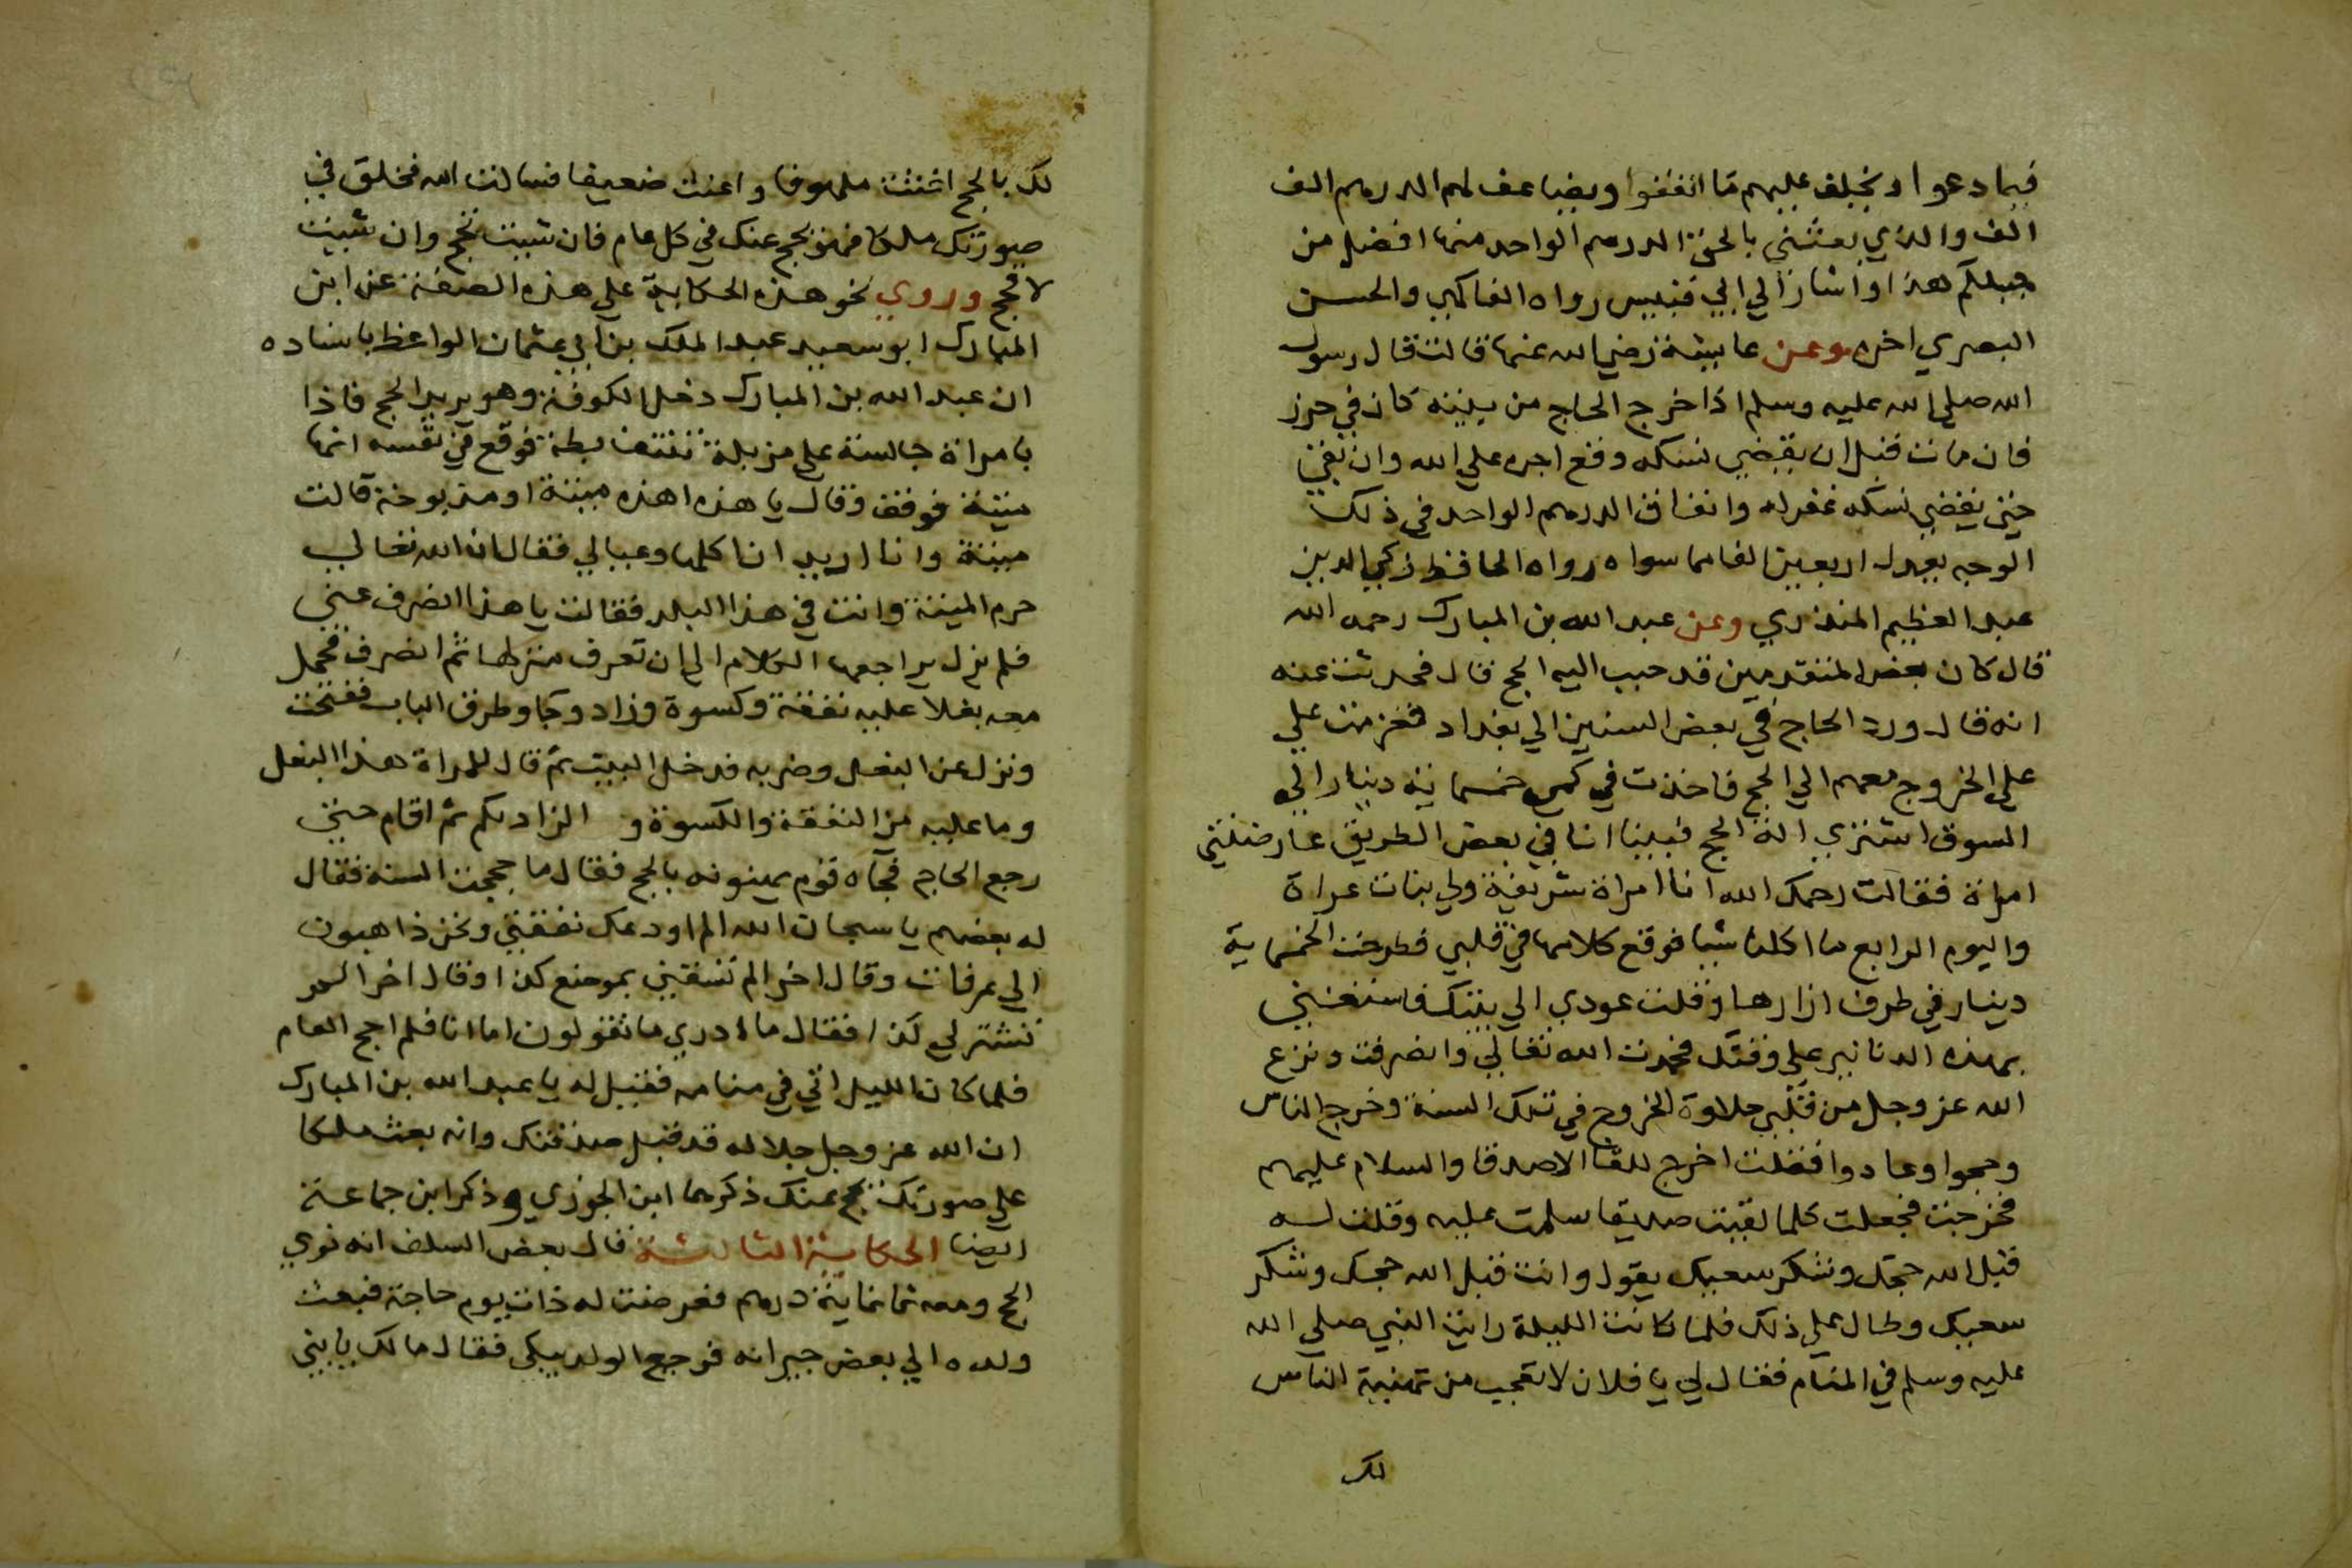 فيما دعوا ويخلف عليهم ما انفقوا ويضاعف لهم الدرهم الف
الف والذي بعثني بالحق الدرهم الواحد منها افضل من
جبلكم هذا واشار الي ابي قبيس رواه الفاكهي والحسن
البصري اخره وعن عايشة رضي الله عنها قالت قال رسول
الله صلي الله عليه وسلم اذا خرج الحاج من بيته كان في حرز
فان مات قبل ان يقضي نسكه وقع اجره علي الله وان بقي
حتي يقضي نسكه غفر له وانفاق الدرهم الواحد في ذلك
الوجه يعدل اربعين الفا مما سواه رواه الحافظ زكي الدين
عبد العظيم المنذري وعن عبد الله بن المبارك رحمه الله
قال كان بعض المتقدمين قد حبب اليه الحج قال فحدثت عنه
انه قال ورد الحاج في بعض السنين الي بغداد فعزمت علي
علي الخروج معهم الي الحج فاخذت في كمي خمسماية دينار الي
السوق اشتري الة الحج فبينا انا في بعض الطريق عارضتني
امراة فقالت رحمك الله انا امراة شريفة ولي بنات عراة
واليوم الرابع ما اكلنا شيا فوقع كلامها في قلبي فطرحت الخمسماية
دينار في طرف ازارها وقلت عودي الي بيتك فاستعيني
بهذه الدنانير علي وقتك فحمدت الله تعالي وانصرفت ونزع
الله عز وجل من قلبي حلاوة الخروج في تلك السنة وخرج الناس
وحجوا وعادوا فقلت اخرج للقا الاصدقا والسلام عليهم
فخرجت فجعلت كلما لقيت صديقا سلمت عليه وقلت له
قبل الله حجك وشكر سعيك يقول وانت قبل الله حجك وشكر
سعيك وطال علي ذلك فلما كانت الليلة رايت النبي صلي الله
عليه وسلم في المنام فقال لي يا فلان لا تعجب من تهنية الناس
لك
لك بالحج اغثت ملهوفا واعنت ضعيفا فسالت الله فخلق في
صورتك ملكا فهو يحج عنك في كل عام فان شيت تحج وان شيت
لا تحج وروي نحو هذه الحكاية علي هذه الصفة عن ابن
المبارك ابو سعيد عبد الملك بن ابي عثمان الواعظ باسناده
ان عبد الله بن المبارك دخل الكوفة وهو يريد الحج فاذا
بامراة جالسة علي مزبلة تنتف بطة فوقع في نفسه انها
ميتة فوقف وقال يا هذه اهذه ميتة او مذبوحة قالت
ميتة وانا اريد ان اكلها وعيالي فقال ان الله تعالي
حرم الميتة وانت في هذا البلد فقالت يا هذا انصرف عني
فلم يزل يراجعها الكلام الي ان تعرف منزلها ثم انصرف فحمل
معه بغلا عليه نفقة وكسوة وزاد وجا وطرق الباب ففتحت
ونزل عن البغل وضربه فدخل البيت ثم قال للمراة هذا البغل
وما عليه من النفقة والكسوة و الزاد لكم ثم اقام حتي
رجع الحاج فجاه قوم يهنونه بالحج فقال ما حججت السنة فقال
له بعضهم يا سبحان الله الم اودعك نفقتي ونحن ذاهبون
الي عرفات وقال اخر الم تسقني بموضع كذا وقال اخر الم
تشتر لي كذا فقال ما ادري ما تقولون اما انا فلم احج العام
فلما كان الليل اتي في منامه فقيل له يا عبد الله بن المبارك
ان الله عز وجل جلاله قد قبل صدقتك وانه بعث ملكا
علي صورتك يحج عنك ذكرها ابن الجوزي وذكر ابن جماعة
ايضا الحكاية الثالثة قال بعض السلف انه نوي
الحج ومعه ثمانماية درهم فعرضت له ذات يوم حاجة فبعث
ولده الي بعض جيرانه فرجع الولد يبكي فقال مالك يا بني